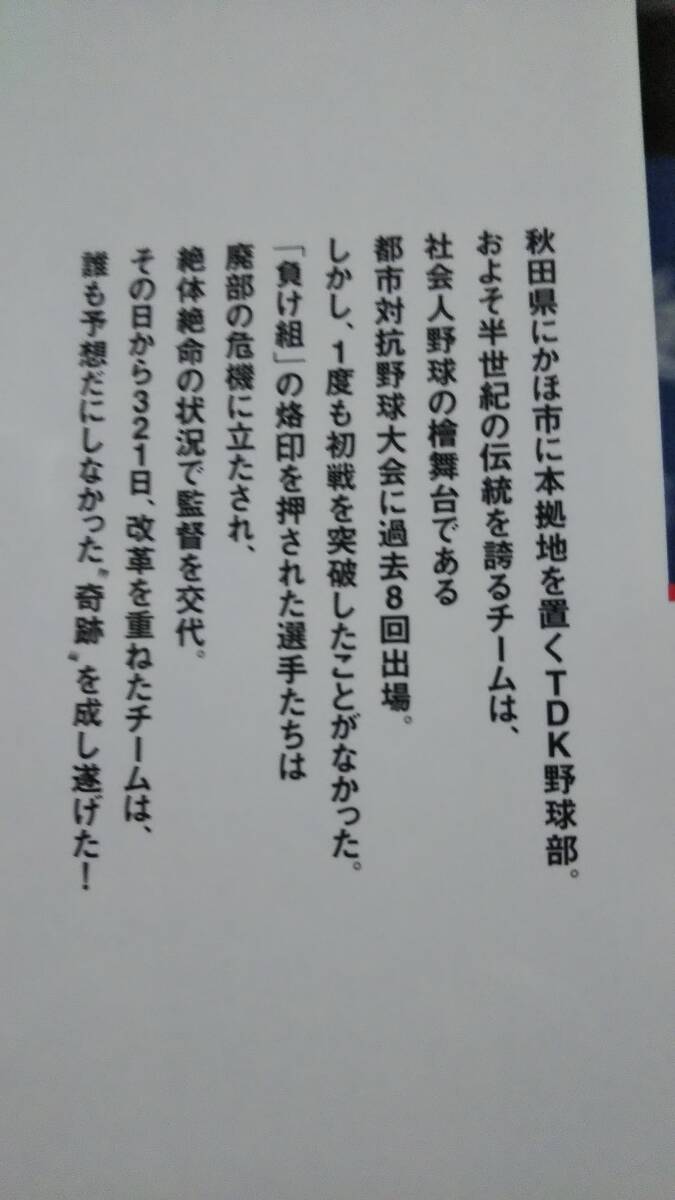 秋田県にかほ市に本拠地を置くTDK野球部。
およそ半世紀の伝統を誇るチームは、
社会人野球の檜舞台である
都市対抗野球大会に過去8回出場。
しかし、1度も初戦を突破したことがなかった。
「負け組」の烙印を押された選手たちは
廃部の危機に立たされ、
絶体絶命の状況で監督を交代。
その日から321日、改革を重ねたチームは、
誰も予想だにしなかった〝奇跡〟を成し遂げた！